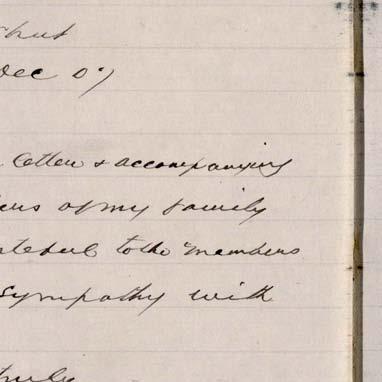 Dec 07
letter & accompanying
of my family
to the members
sympathy with
truly